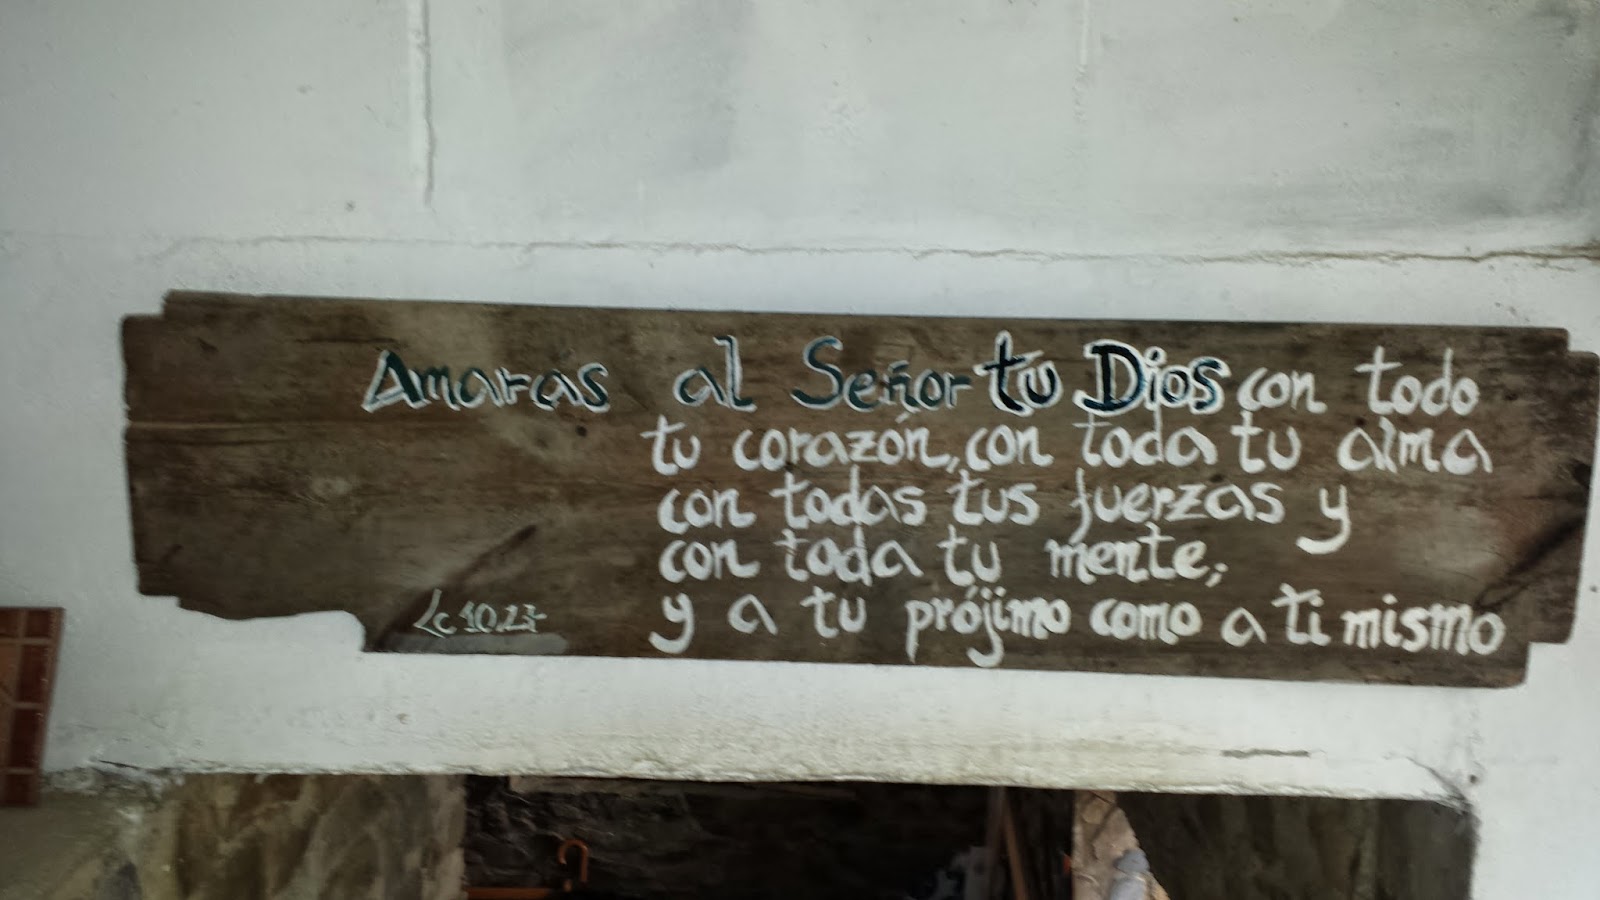 Amaras al Señor tu Dios con todo
tu corazón, con toda tu alma
con todas tus fuerzas y
con toda tu mente;
y a tu prójimo como a ti mismo
Lc 10.27